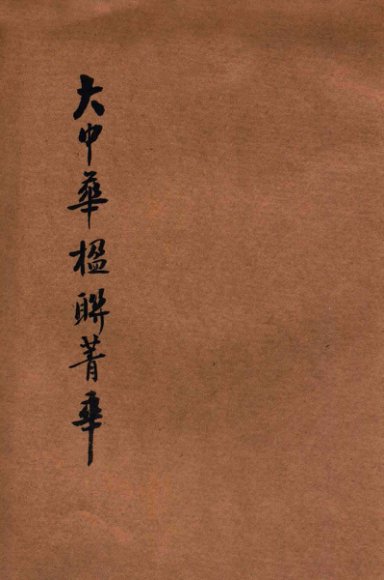 大中華楹聯菁華